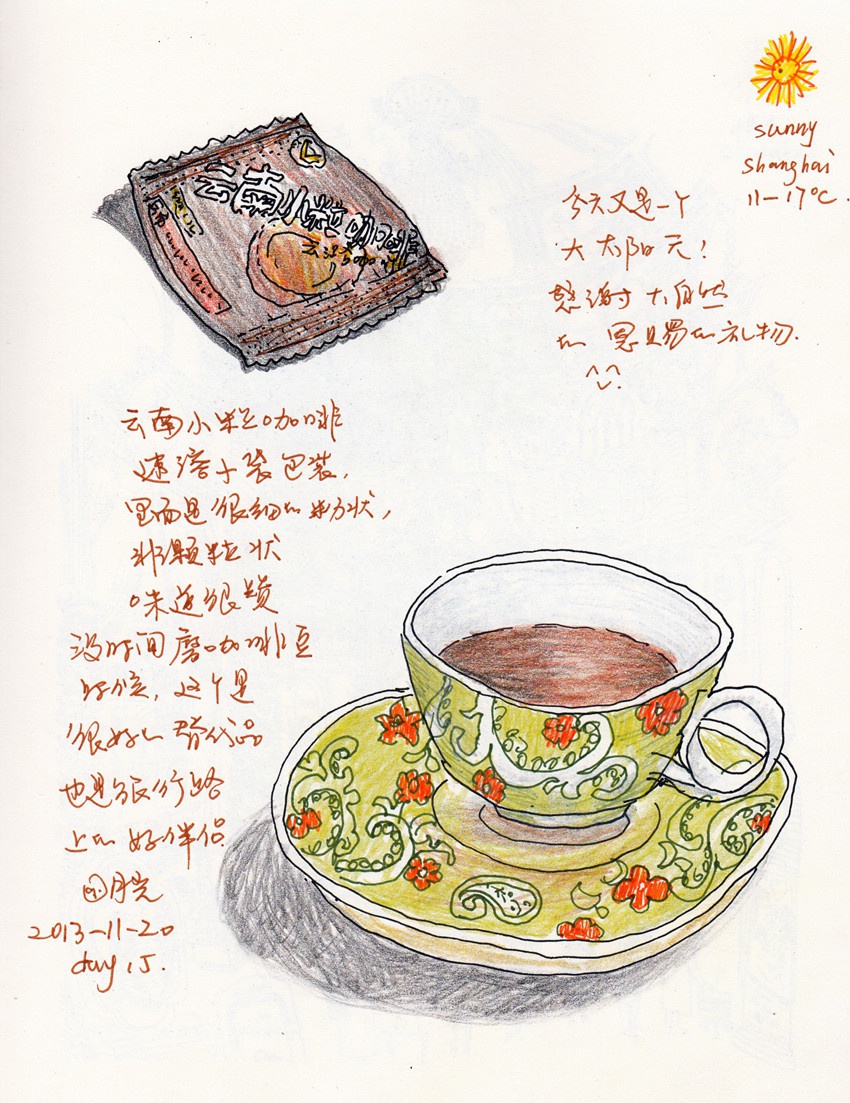 sunny
shanghai
11-17°C.
今天又是一个
大太阳天!
感谢大自然
的恩赐的礼物.
云南小粒咖啡
云南小粒咖啡
速溶小袋包装,
里面是很细的粉状,
非颗粒状
味道很赞
没时间磨咖啡豆
时候, 这个是
很好的替代品
也是旅行路
上的好伴侣
2013-11-20
day 15.